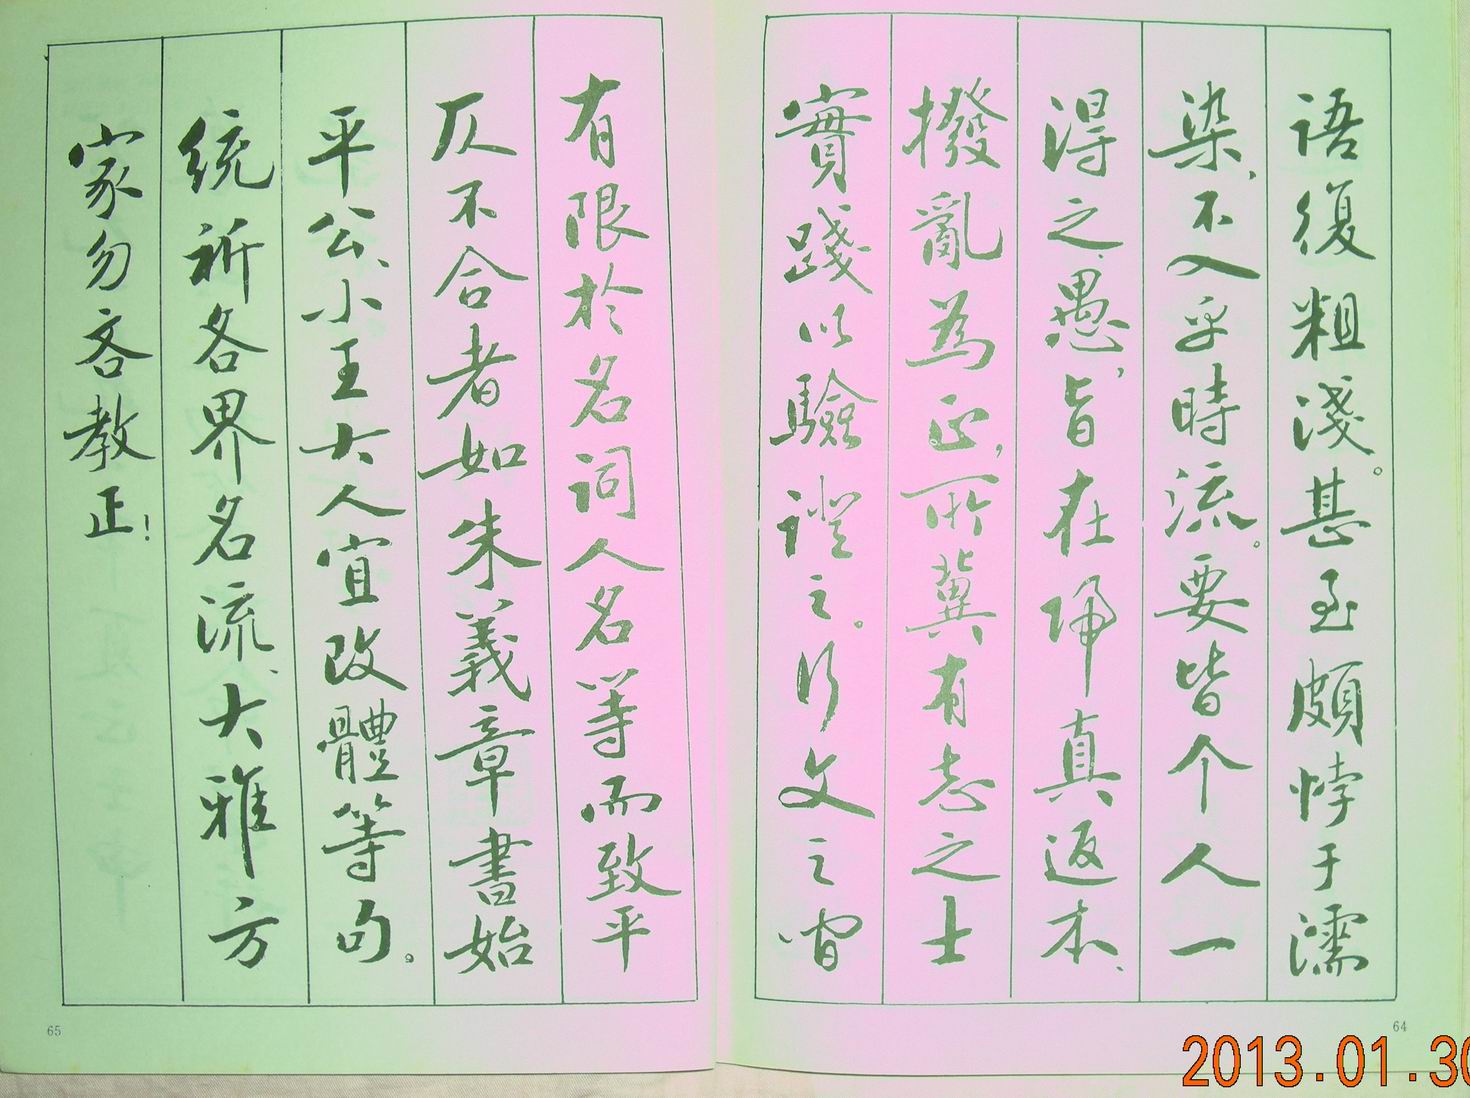 語復粗淺。甚至頗悖于濡
染，不入乎時流。要皆个人一
得之愚，旨在歸真返本、
撥亂為正，所冀有志之士
實踐以驗證之。行文之間
有限於名詞人名等而致平
仄不合者如朱義章書始
平公、小王大人宜改體等句。
統祈各界名流、大雅方
家勿吝教正！
64
65
2013.01.30